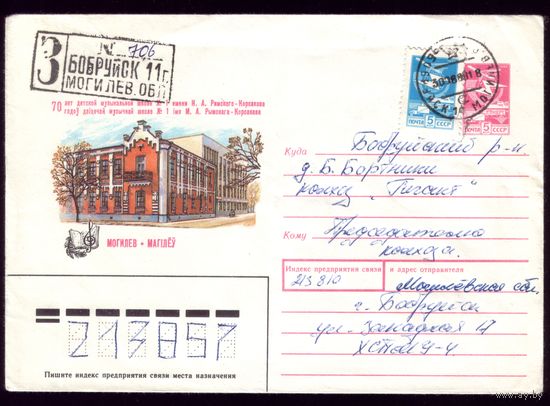 З
№ 706
БОБРУЙСК 11 г.
МОГИЛЕВ. ОБЛ.
70 лет детской музыкальной школе № 1 имени Н. А. Римского-Корсакова
гадоў дзіцячай музычнай школе № 1 імя М. А. Рымскага-Корсакава
МОГИЛЕВ • МАГІЛЁЎ
ПОЧТА 5 СССР
ПОЧТА 5 СССР
Куда Бобруйский р-н
д. Б. Бортники
колхоз "Гигант"
Кому Председателю
колхоза.
Индекс предприятия связи и адрес отправителя
213810 Могилёвская обл.
г. Бобруйск
ул. Западная
213857
Пишите индекс предприятия связи места назначения
www.ay.by